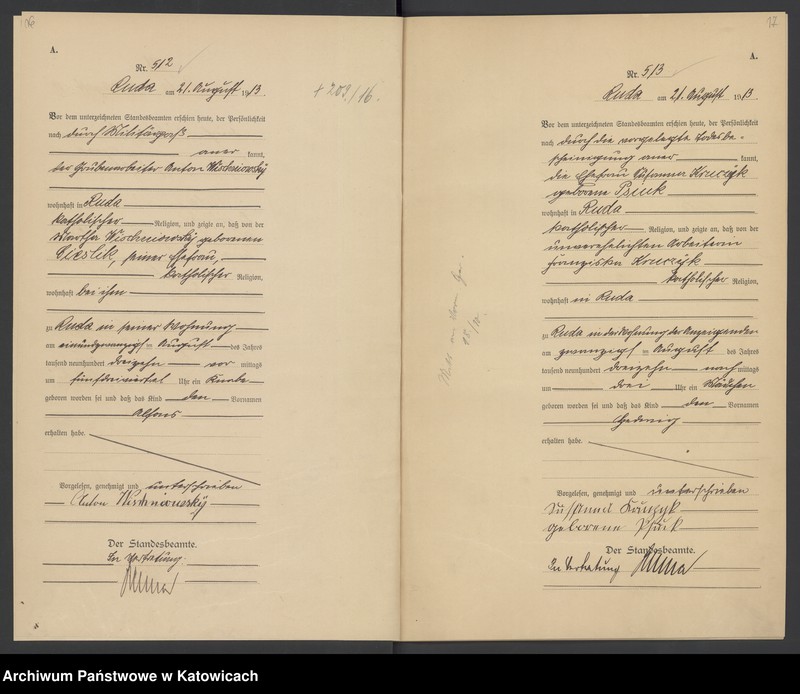 A.
Nr. 512
Ruda am 21. August 1913.
+ 209/16.
Vor dem unterzeichneten Standesbeamten erschien heute, der Persönlichkeit
nach durch Militärpaß
aner kannt,
der Grubenarbeiter Anton Wischniowsky
wohnhaft in Ruda
katholischer Religion, und zeigte an, daß von der
Martha Wischniowsky geborenen
Cieslik, seiner Ehefrau,
katholischer Religion,
wohnhaft bei ihm
zu Ruda in seiner Wohnung
am einundzwanzigs ten August des Jahres
tausend neunhundert dreizehn vor mittags
um fünfdreiviertel Uhr ein Knabe
geboren worden sei und daß das Kind den Vornamen
Alfons
erhalten habe.
Vorgelesen, genehmigt und unterschrieben
Anton Wischniowsky
Der Standesbeamte.
In Vertretung
17
A.
Nr. 513
Ruda am 21. August 1913.
Vor dem unterzeichneten Standesbeamten erschien heute, der Persönlichkeit
nach durch die vorgelegte Todesbe-
scheinigung aner kannt,
die Ehefrau Susanna Kruczyk
geborene
wohnhaft in Ruda
katholischer Religion, und zeigte an, daß von der
unverehelichten Arbeiterin
Franziska Kruczyk
katholischer Religion,
wohnhaft in Ruda
zu Ruda in der Wohnung der Anzeigenden
am zwanzigs ten August des Jahres
tausend neunhundert dreizehn nach mittags
um drei Uhr ein Mädchen
geboren worden sei und daß das Kind den Vornamen
Hedwig
erhalten habe.
Vorgelesen, genehmigt und unterschrieben
Susanna
geborene
Der Standesbeamte.
In Vertretung
Archiwum Państwowe w Katowicach